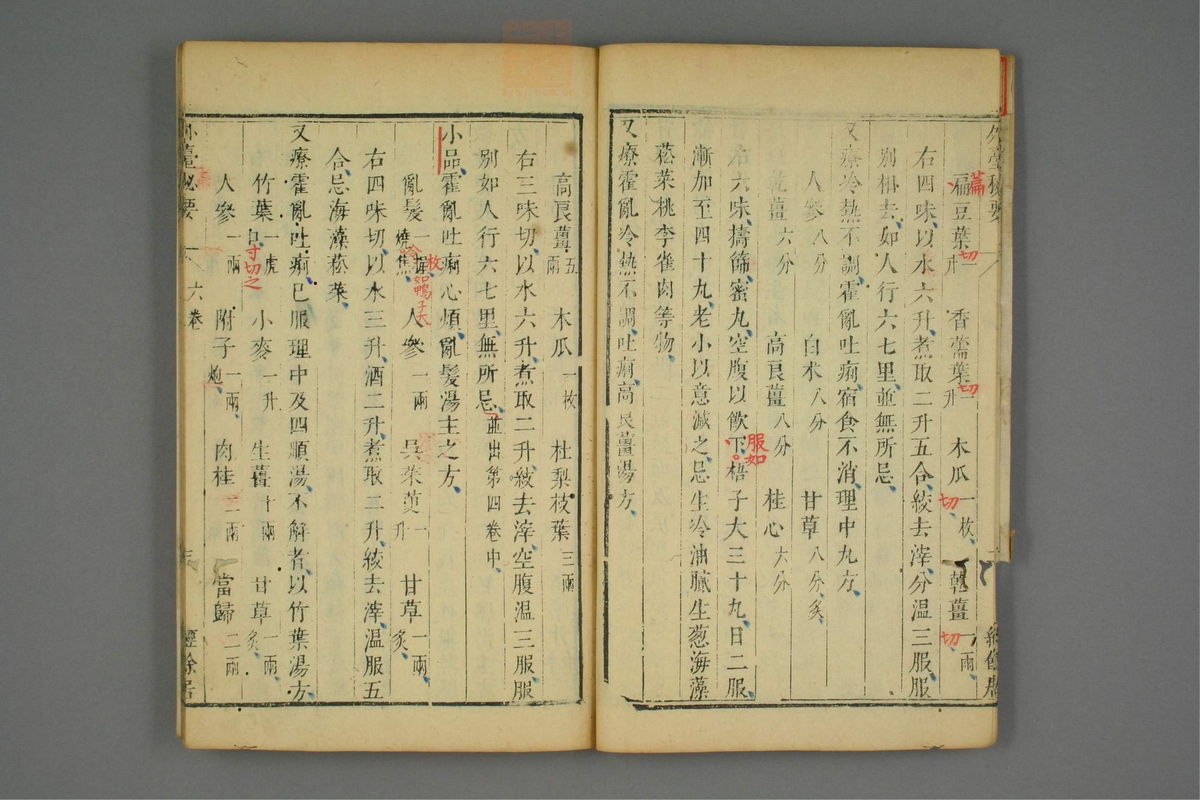 外臺秘要
萹豆葉一升 香薷葉一升 木瓜一枚 乾薑一兩
切 切 切 切
右四味以水六升煮取二升五合絞去滓分溫三服服
別相去如人行六七里並無所忌
又療冷熱不調霍亂吐痢宿食不消理中丸方
人參八分 白朮八分 甘草八分炙
乾薑六分 高良薑八分 桂心六分
右六味擣篩蜜丸空腹以飲下梧子大三十丸日二服
服如
漸加至四十九老小以意減之忌生冷油膩生葱海藻
菘菜桃李雀肉等物
又療霍亂冷熱不調吐痢高良薑湯方
高良薑五兩 木瓜一枚 杜梨枝葉三兩
右三味切以水六升煮取二升絞去滓空腹溫三服服
別如人行六七里無所忌並出第四卷中
小品霍亂吐痢心煩亂髮湯主之方
亂髮一 燒焦 人參一兩 吳茱萸一升 甘草一兩炙
枚如鴨子大
右四味切以水三升酒二升煮取二升絞去滓溫服五
合忌海藻菘菜
又療霍亂吐痢已服理中及四順湯不解者以竹葉湯方
竹葉一虎口 小麥一升 生薑十兩 甘草一兩炙
寸切之
人參一兩 附子一兩炮 肉桂二兩 當歸二兩
外臺秘要 六卷 經餘居